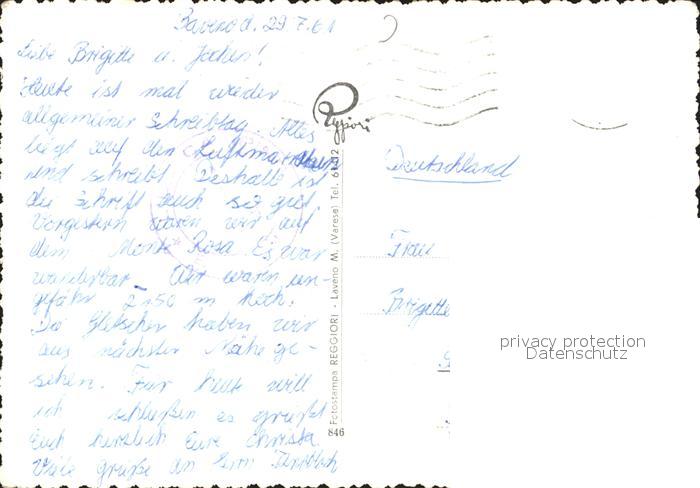 Baveno d. 29.7.61
Liebe Brigitte u. Jochen!
Heute ist mal wieder
allgemeiner Schreibtag Alles
liegt auf den Luftmatratzen
und schreibt Deshalb ist
die Schrift auch so gut.
Vorgestern waren wir auf
dem Monte Rosa Es war
wunderbar. Wir waren un-
gefähr 2150 m hoch.
Die Gletscher haben wir
aus nächster Nähe ge-
sehen. Für heute will
ich schließen es grüßt
Euch herzlich Eure Christa
Viele grüße an
Reggiori
Fotostampa REGGIORI - Laveno M. (Varese) Tel.
846
Deutschland
Frau
Brigitte
privacy protection
Datenschutz